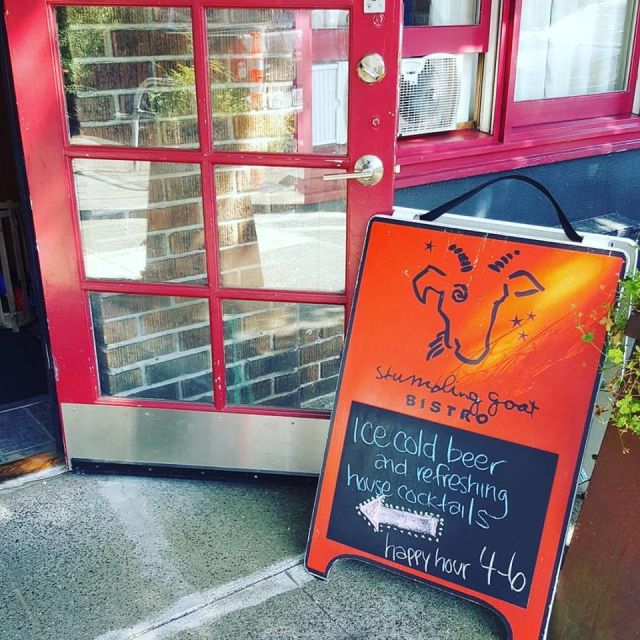 stumbling goat
BISTRO
Ice cold beer
and refreshing
house cocktails
happy hour 4-6